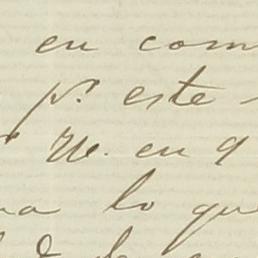 en com
p.r este
W. en q
na lo que